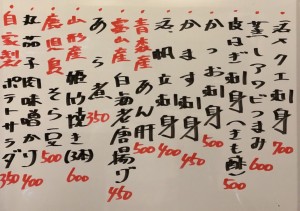 活クエ刺身 700
蒸しアワビつまみ 600
皮はぎ刺身(きも酢) 500
かつお刺身 500
かます刺身 400
活帆立刺身 500
青森産 あん肝 500
富山産 白海老唐揚げ 450
あら煮 350
山形産 姫竹焼き(3本) 600
鹿児島 そら豆 500
丸茄子肉味噌かけ 400
自家製 ポテトサラダ 350